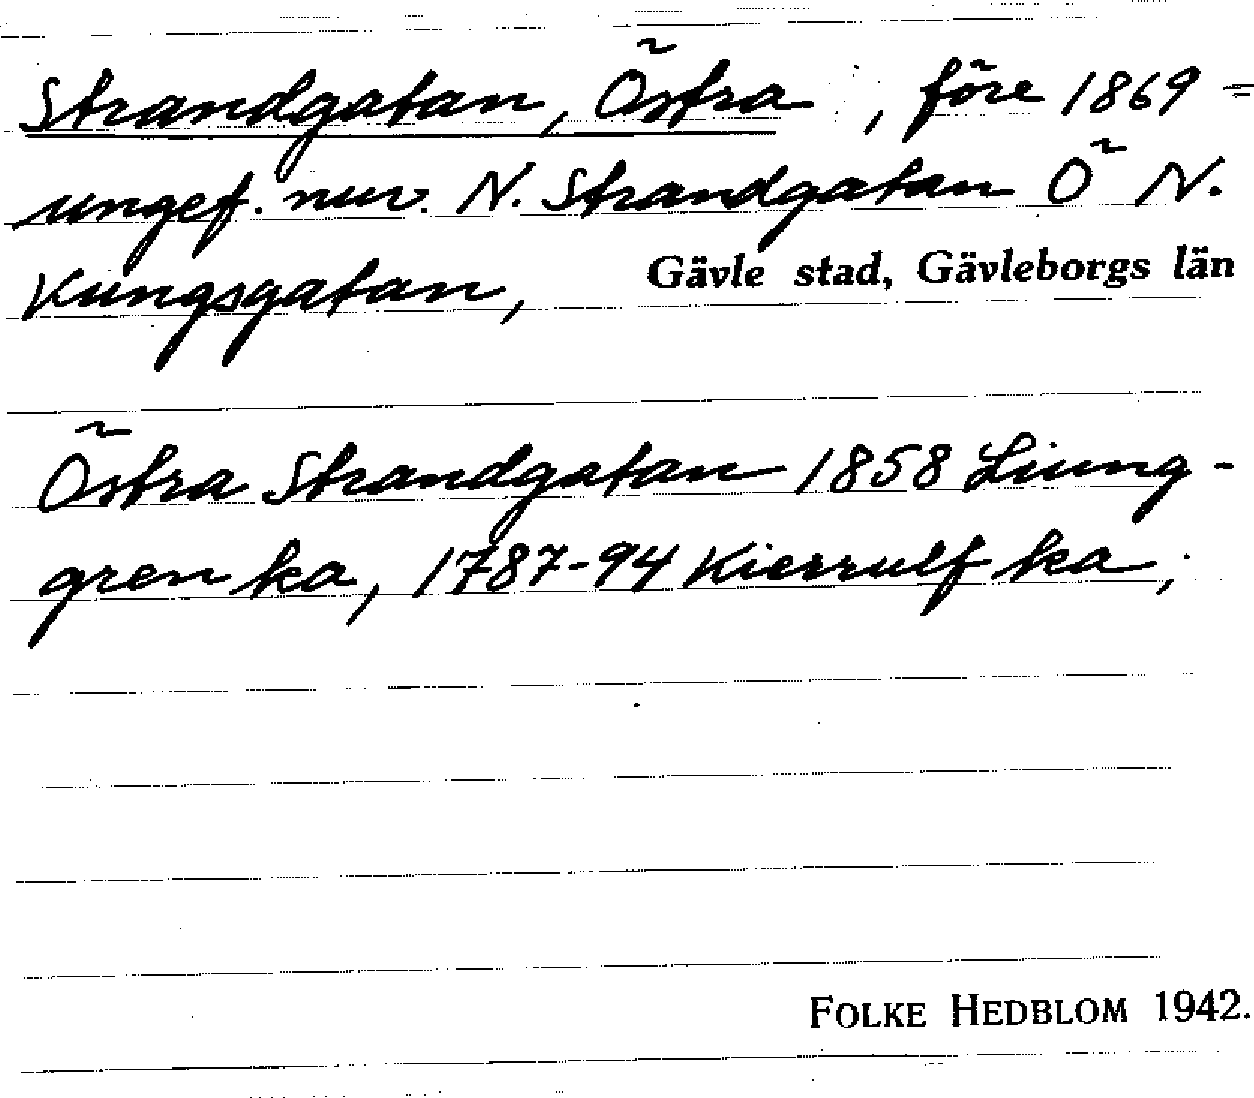 Strandgatan, Östra, före 1869 =
ungef. nuv. N. Strandgatan Ö N.
Kungsgatan, Gävle stad, Gävleborgs län
Östra Strandgatan 1858 Ljung-
gren ka, 1787-94 Kierrulf ka,
FOLKE HEDBLOM 1942.